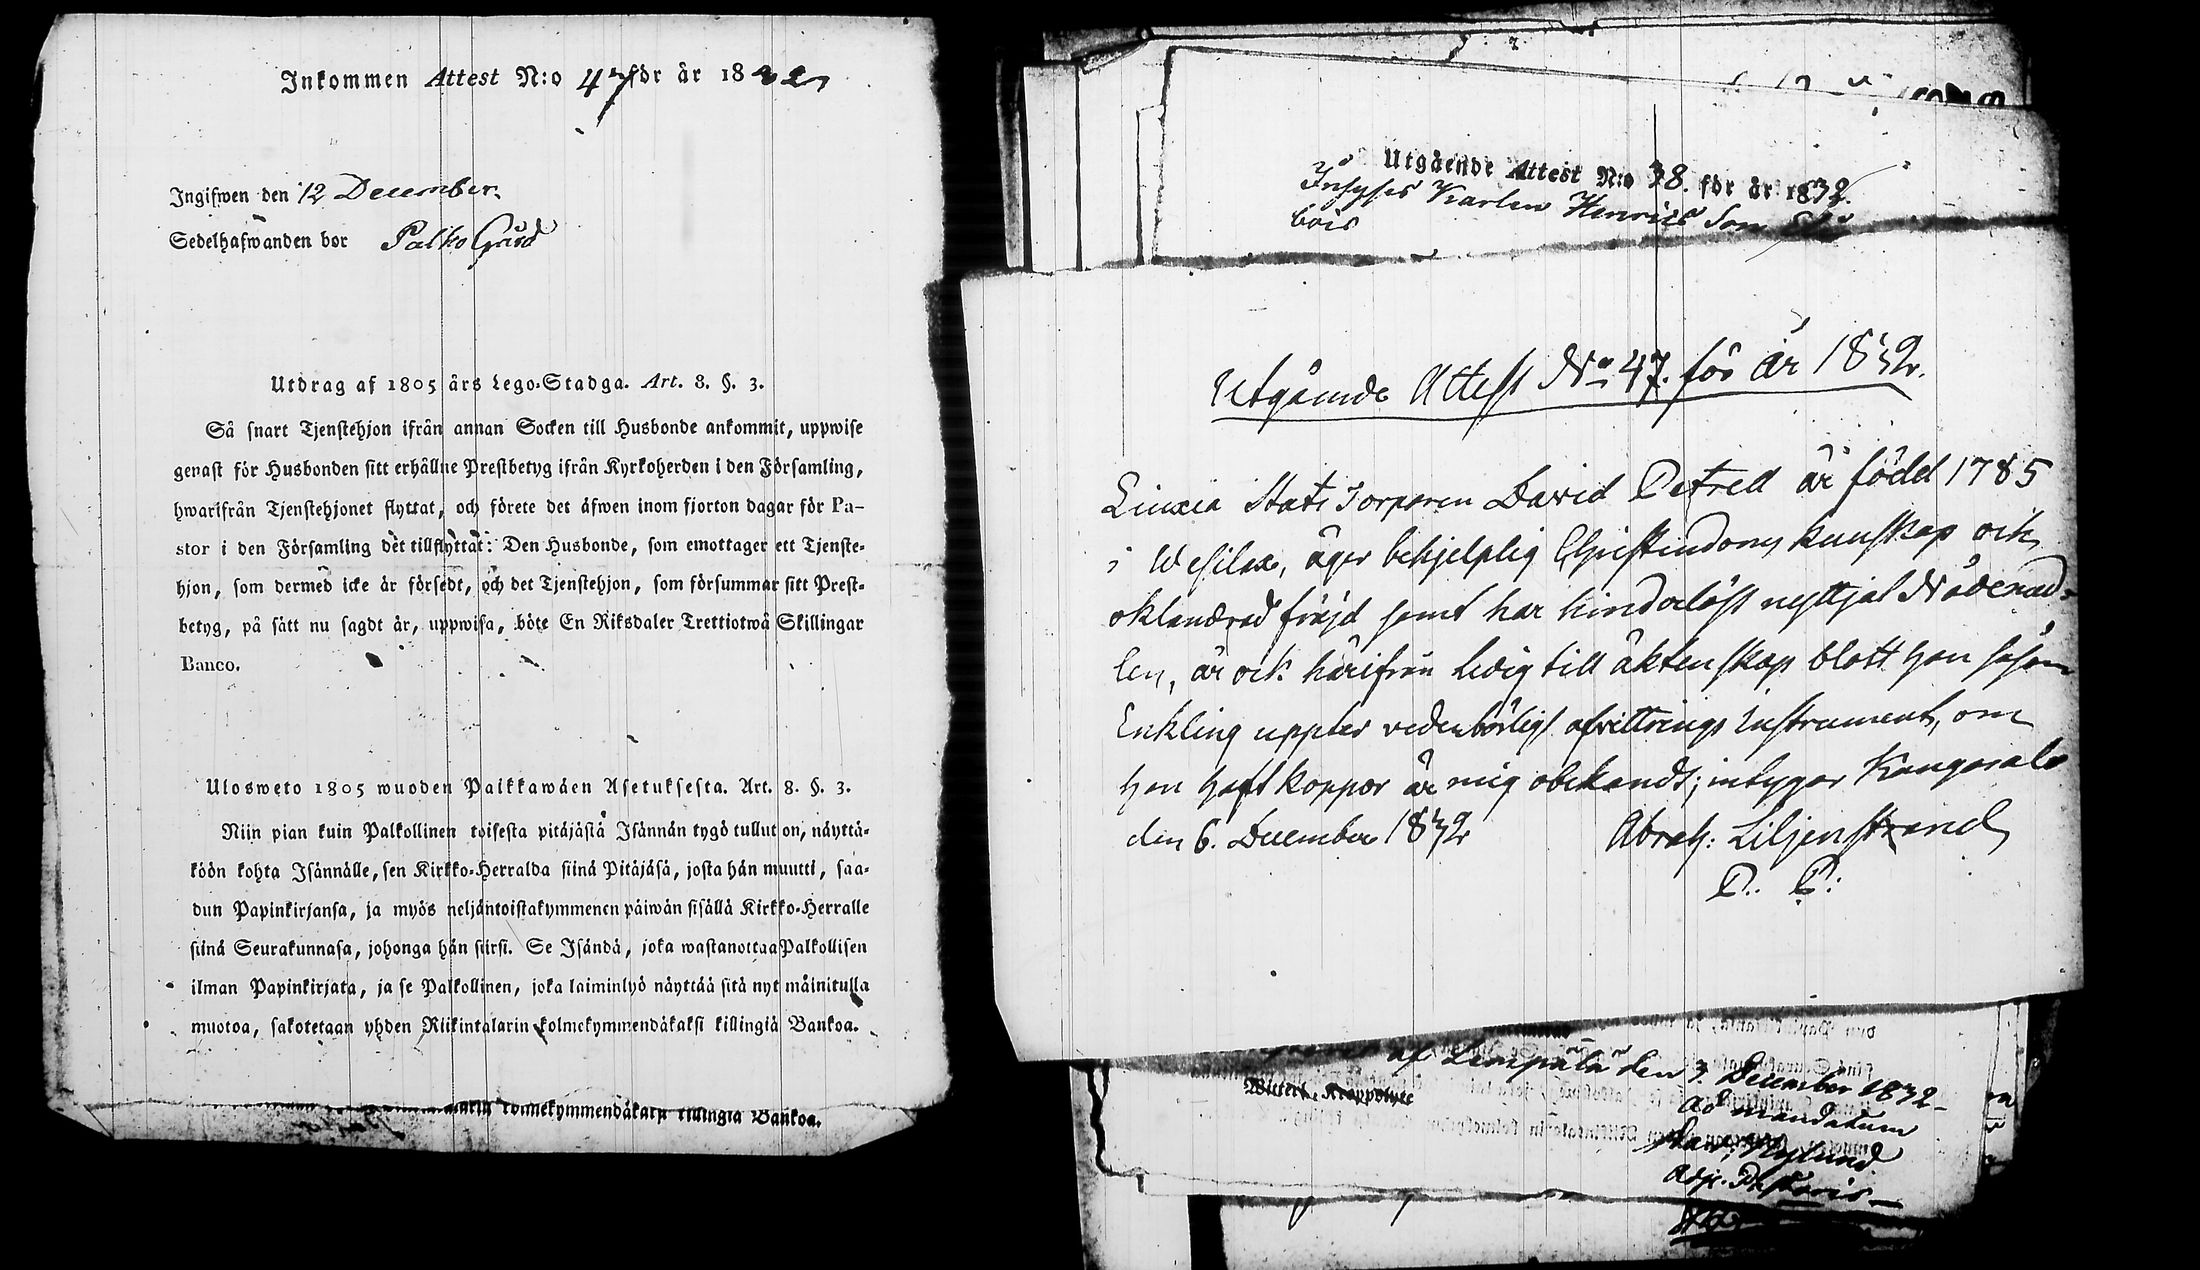 Inkommen Attest N:o 47 för år 1832
Ingifwen den 12 December.
Sedelhafwanden bor Palho Gård
Utdrag af 1805 års Lego-Stadga. Art. 8. §. 3.
Så snart Tjenstehjon ifrån annan Socken till Husbonde ankommit, uppwise
genast för Husbonden sitt erhållne Prestbetyg ifrån Kyrkoherden i den Församling,
hwarifrån Tjenstehjonet flyttat, och förete det äfwen inom fjorton dagar för Pa-
stor i den Församling det tillflyttat: Den Husbonde, som emottager ett Tjenste-
hjon, som dermed icke är försedt, och det Tjenstehjon, som försummar sitt Prest-
betyg, på sätt nu sagdt är, uppwisa, böte En Riksdaler Trettiotwå Skillingar
Banco.
Ulosweto 1805 wuoden Palkkawäen Asetuksesta. Art. 8. §. 3.
Niin pian kuin Palkollinen toisesta pitäjästä Isännän tygö tullut on, näyttä-
köön kohta Isännälle, sen Kirkko-Herralda siinä Pitäjäsä, josta hän muutti, saa-
dun Papinkirjansa, ja myös neljäntoistakymmenen päiwän sisällä Kirkko-Herralle
siinä Seurakunnasa, johonga hän siirsi. Se Isändä, joka wastanottaa Palkollisen
ilman Papinkirjata, ja se Palkollinen, joka laiminlyö näyttää sitä nyt mainitulla
muotoa, sakotetaan yhden Riikintalarin kolmekymmendäkaksi killingiä Bankoa.
kolmekymmendäkaksi killingiä Bankoa.
Utgående Attest N:o 38. för år 1832.
Karlen Henric Son
Utgående Attest No 47. för år 1832.
Stats Torparen David Petrell är född 1785
i Wesilax, äger behjelplig Christendoms kunskap och
oklandrad fräjd samt har hinderlöst nyttjat Nådemed-
len, är ock härifrån ledig till äktenskap blott han såsom
Enkling uppter vederbörligt afvittrings Instrument, om
han haft koppor är mig obekandt; intygar Kangasala
den 6. December 1832 Abrah: Liljenstrand
P. P.
af Lempälä den 3. December 1832
Ad mandatum
Nylund
Adj. Pastoris